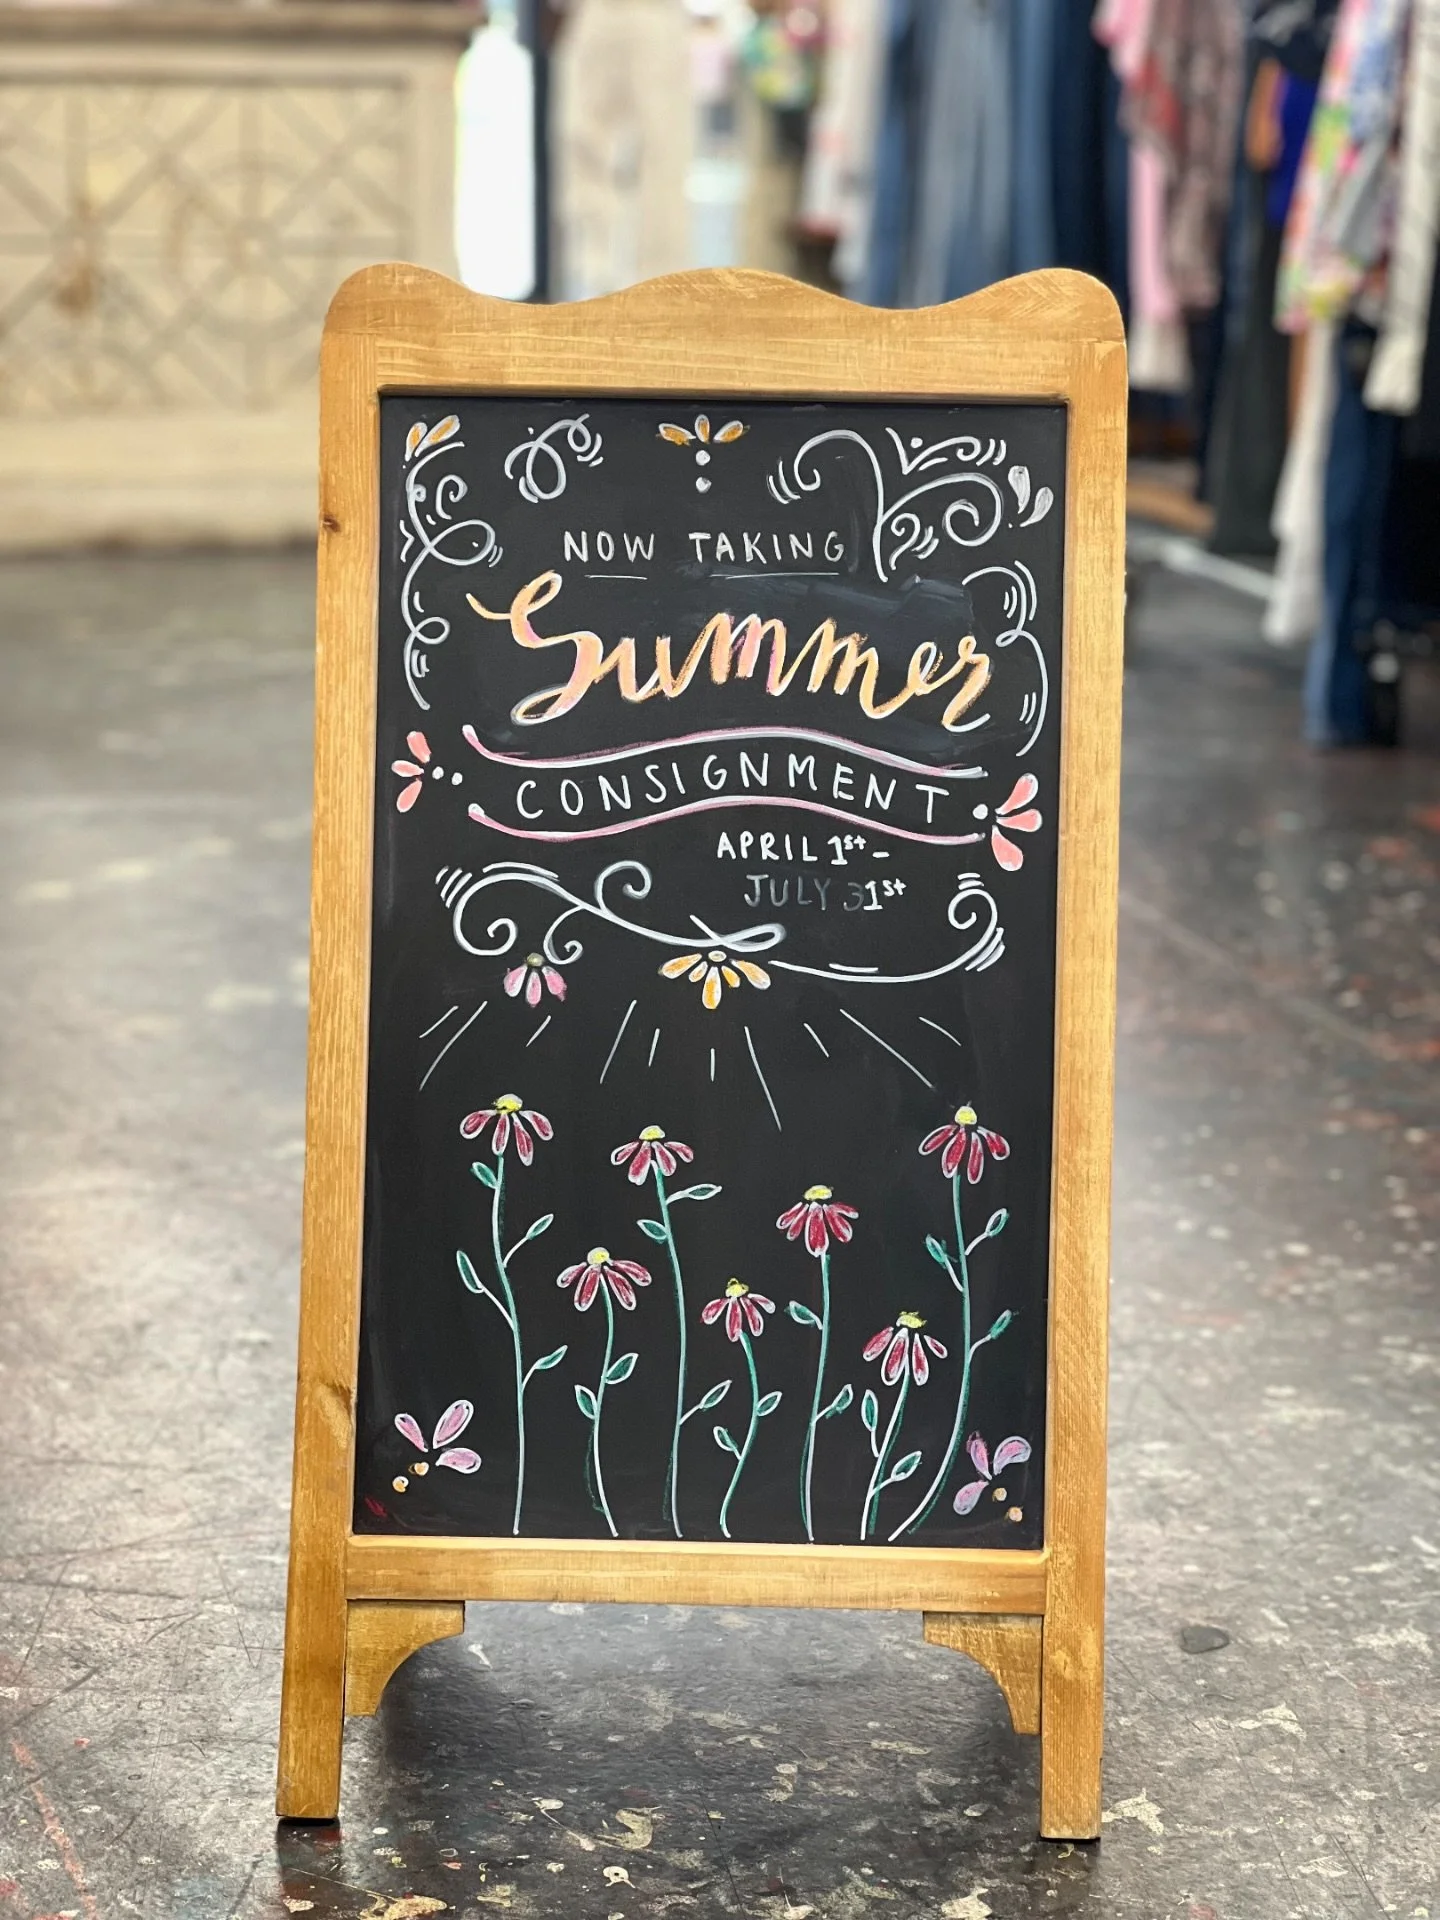 NOW TAKING
Summer
CONSIGNMENT
APRIL 1st -
JULY 31st